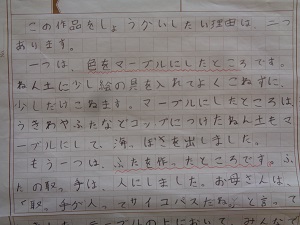 この作品をしょうかいしたい理由は、二つ
あります。
一つは、色をマーブルにしたところです。
ねん土に少し絵の具を入れてよくこねずに、
少しだけこねます。マーブルにしたところは
うきわやふたなどコップにつけたねん土もマ
ーブルにして、海っぽさを出しました。
もう一つは、ふたを作ったところです。ふ
たの取っ手は、人にしました。お母さんは、
「取っ手が人ってサイコパスだね。」と言って